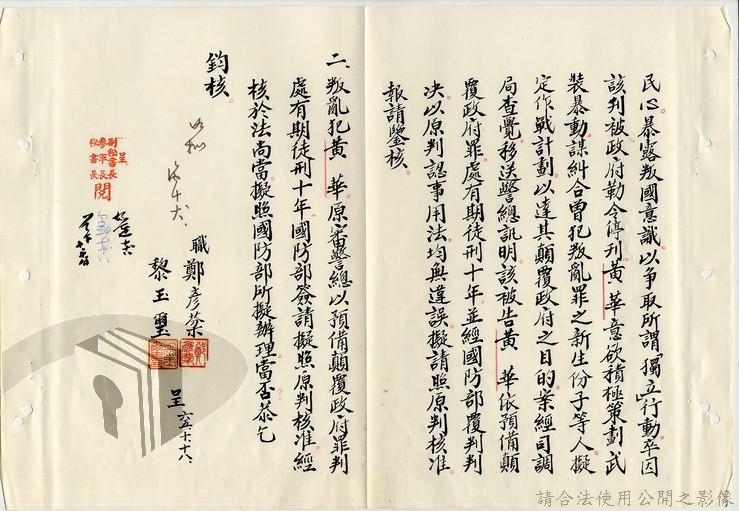 民心暴露叛國意識以争取所謂「獨立」行動卒因
該刊被政府勒令停刊黄華意欲積極策劃武
裝暴動謀糾合曾犯叛亂罪之新生份子等人擬
定作戰計劃以達其顛覆政府之目的案經司調
局查覺移送警總訊明該被告黄華依預備顛
覆政府罪處有期徒刑十年並經國防部覆判判
決以原判認事用法均無違誤擬請照原判核准
報請鑒核。
二、叛亂犯黄華原審警總以預備顛覆政府罪判
處有期徒刑十年國防部簽請擬照原判核准經
核於法尚當擬照國防部所擬辦理當否恭乞
鈞核。
職 鄭彥棻
黎玉璽
呈 六五、十、十八、
呈
副秘書長
參軍長
秘書長
閱
請合法使用公開之影像